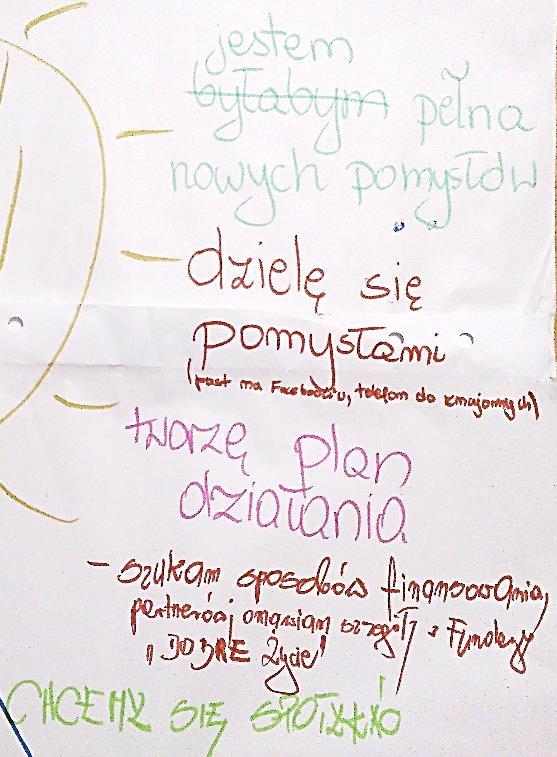 jestem
byłabym pełna
nowych pomysłów
dzielę się
pomysłami
(post na Facebook'u, telefon do znajomych)
tworzę plan
działania
- szukam sposobów finansowania,
partnerów, omawiam szczegóły z Fundacją
"DOBRE Życie"
CHCEMY SIĘ